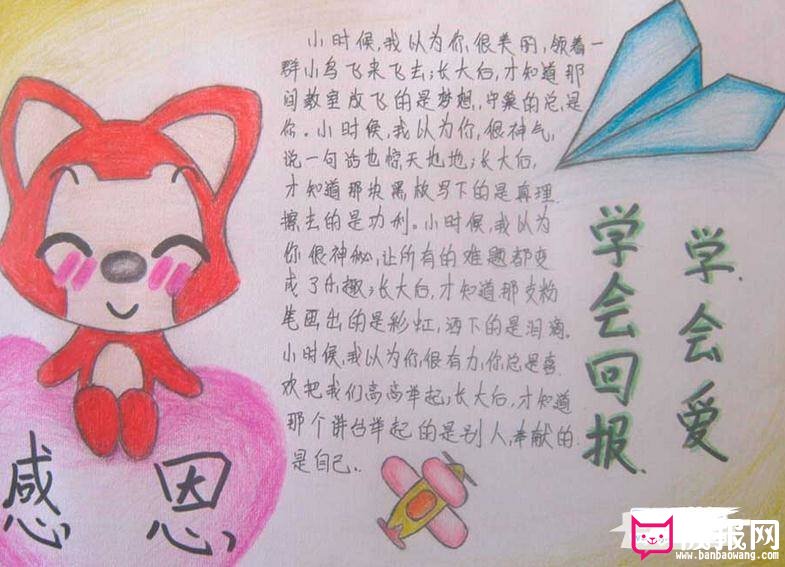 小时候,我以为你很美丽,领着一
群小鸟飞来飞去;长大后,才知道那
间教室放飞的是梦想,守巢的总是
你。小时候,我以为你很神气,
说一句话也惊天地地;长大后,
才知道那块黑板写下的是真理
擦去的是功利。小时候,我以为
你很神秘,让所有的难题都变
成了乐趣;长大后,才知道那支粉
笔画出的是彩虹,洒下的是泪滴。
小时候,我以为你很有力,你总是喜
欢把我们高高举起;长大后,才知道
那个讲台举起的是别人,奉献的
是自己.
学会爱
学会回报
感恩
报网
www.banbaowang.com